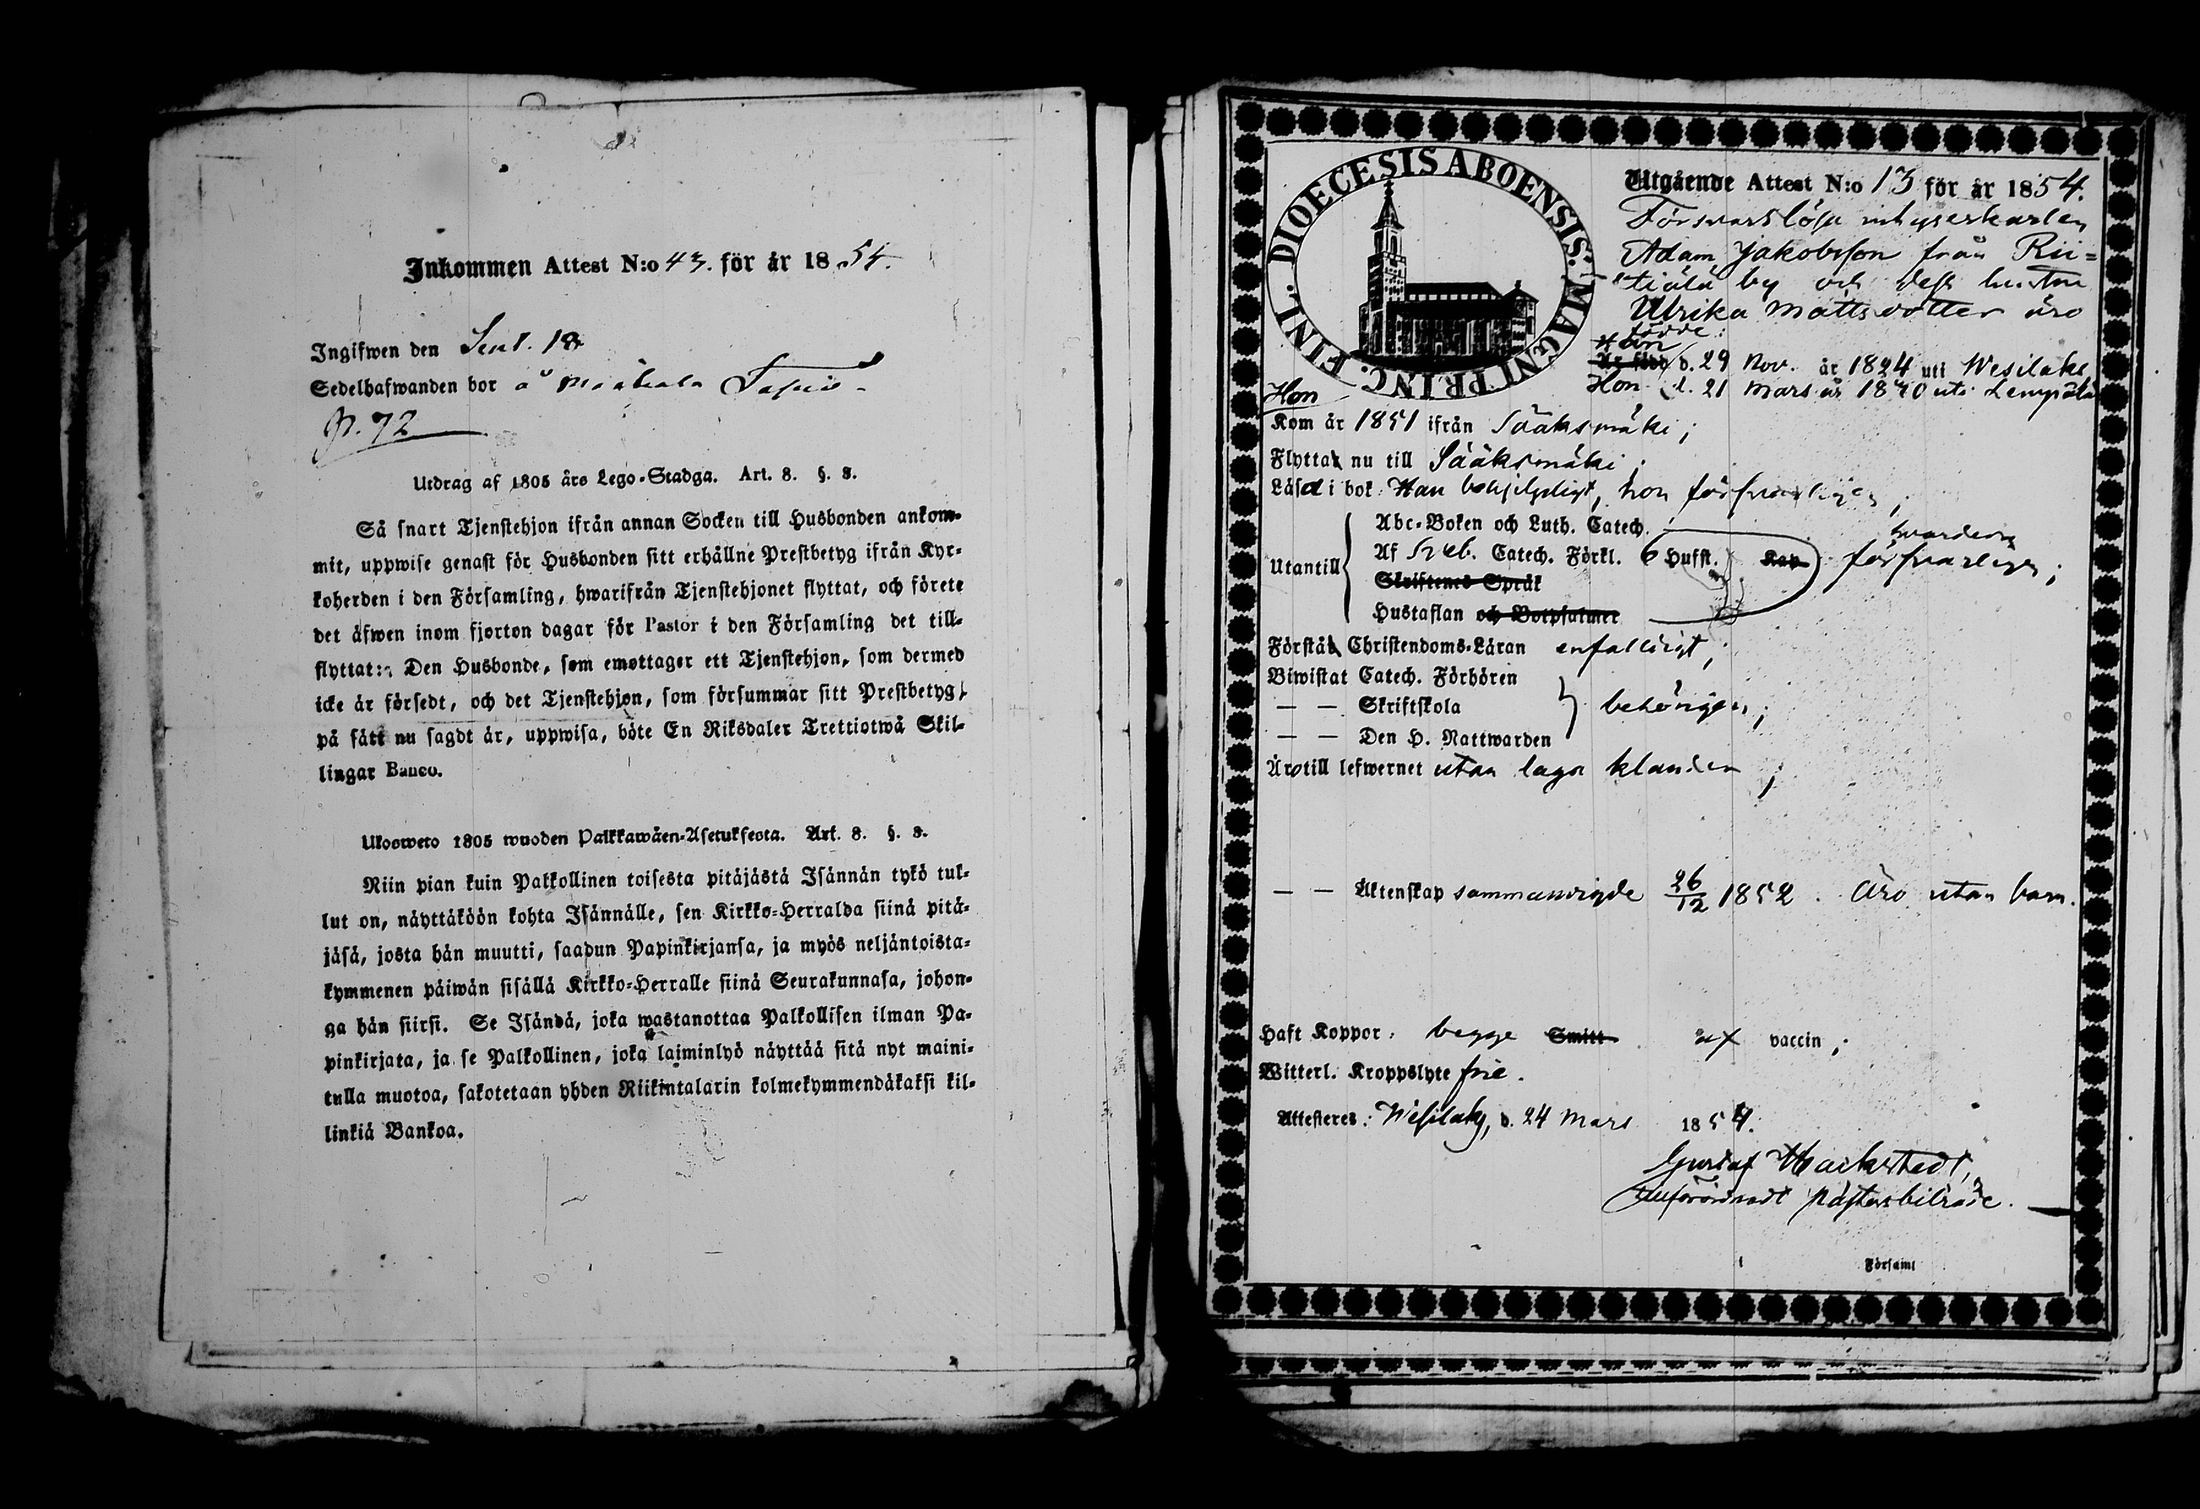 Inkommen Attest N:o 43. för år 1854.
Ingifwen den Sept. 18
Sedelhafwanden bor å
P. 72
Utdrag af 1805 års Lego-Stadga. Art. 8. §. 8.
Så snart Tjenstehjon ifrån annan Socken till Husbonden ankom-
mit, uppwise genast för Husbonden sitt erhållne Prestbetyg ifrån Kyr-
koherden i den Församling, hwarifrån Tjenstehjonet flyttat, och förete
det äfwen inom fjorton dagar för Pastor i den Församling det till-
flyttat: Den Husbonde, som emottager ett Tjenstehjon, som dermed
icke är försedt, och det Tjenstehjon, som försummar sitt Prestbetyg,
på sätt nu sagdt är, uppwisa, böte En Riksdaler Trettiotwå Skil-
lingar Banco.
Ulosweto 1805 wuoden Palkkawäen-Asetuksesta. Art. 8. §. 8.
Niin pian kuin Palkollinen toisesta pitäjästä Isännän tykö tul-
lut on, näyttäköön kohta Isännälle, sen Kirkko-Herralda siinä pitä-
jäsä, josta hän muutti, saadun Papinkirjansa, ja myös neljäntoista-
kymmenen päiwän sisällä Kirkko-Herralle siinä Seurakunnasa, johon-
ga hän siirsi. Se Isändä, joka wastanottaa Palkollisen ilman Pa-
pinkirjata, ja se Palkollinen, joka laiminlyö näyttää sitä nyt maini-
tulla muotoa, sakotetaan yhden Riikintalarin kolmekymmendäkaksi kil-
linkiä Bankoa.
DIOECESIS ABOENSIS. MAGNI PRINC. FINL.
Utgående Attest N:o 13 för år 1854.
Försvarslösa inhysekarlen
Adam Jakobsson från Rii=
tiälä by och dess hustru
Ulrika Mattsdotter äro
födde:
Han
Är född d. 29 Nov. år 1824 uti Wesilaks
Hon d. 21 Mars år 1820 uti Lempälä
Hon
Kom år 1851 ifrån Sääksmäki;
Flytta nu till Sääksmäki;
Läsa i bok: Han behjelpligt, hon försvarligen,
Abc-Boken och Luth. Catech.
Utantill Af Sveb. Catech. Förkl. 6 Hufst. Kap hvardera försvarligen;
Skriftenes Språk
Hustaflan och Botpsalmer
Förstå Christendoms-Läran enfaldigt;
Biwistat Catech. Förhören
— — Skriftskola behörigen;
— — Den H. Nattwarden
Äro till lefwernet utan laga klander;
— — Äktenskap sammanvigde 26/12 1852. Äro utan barn.
Haft Koppor: begge Smitt af vaccin;
Witterl. Kroppslyte frie.
Attesteres: Wesilaks, d. 24 Mars 1854.
Gustaf
Anförordnadt Pastorsbiträde.
Församl